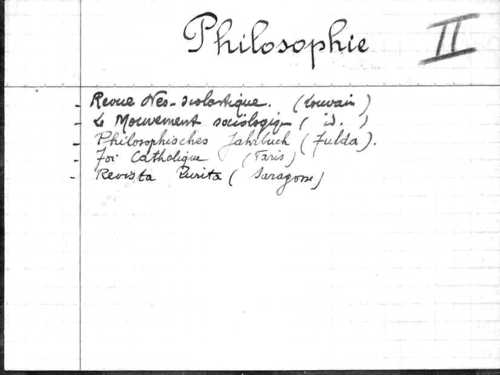 Philosophie II
- Revue Néo-scolastique. (Louvain)
- Le Mouvement sociologiq (id.)
- Philosophisches Jahrbuch (Fulda).
- Foi Catholique (Paris)
- Revista Zurita (Saragosse)